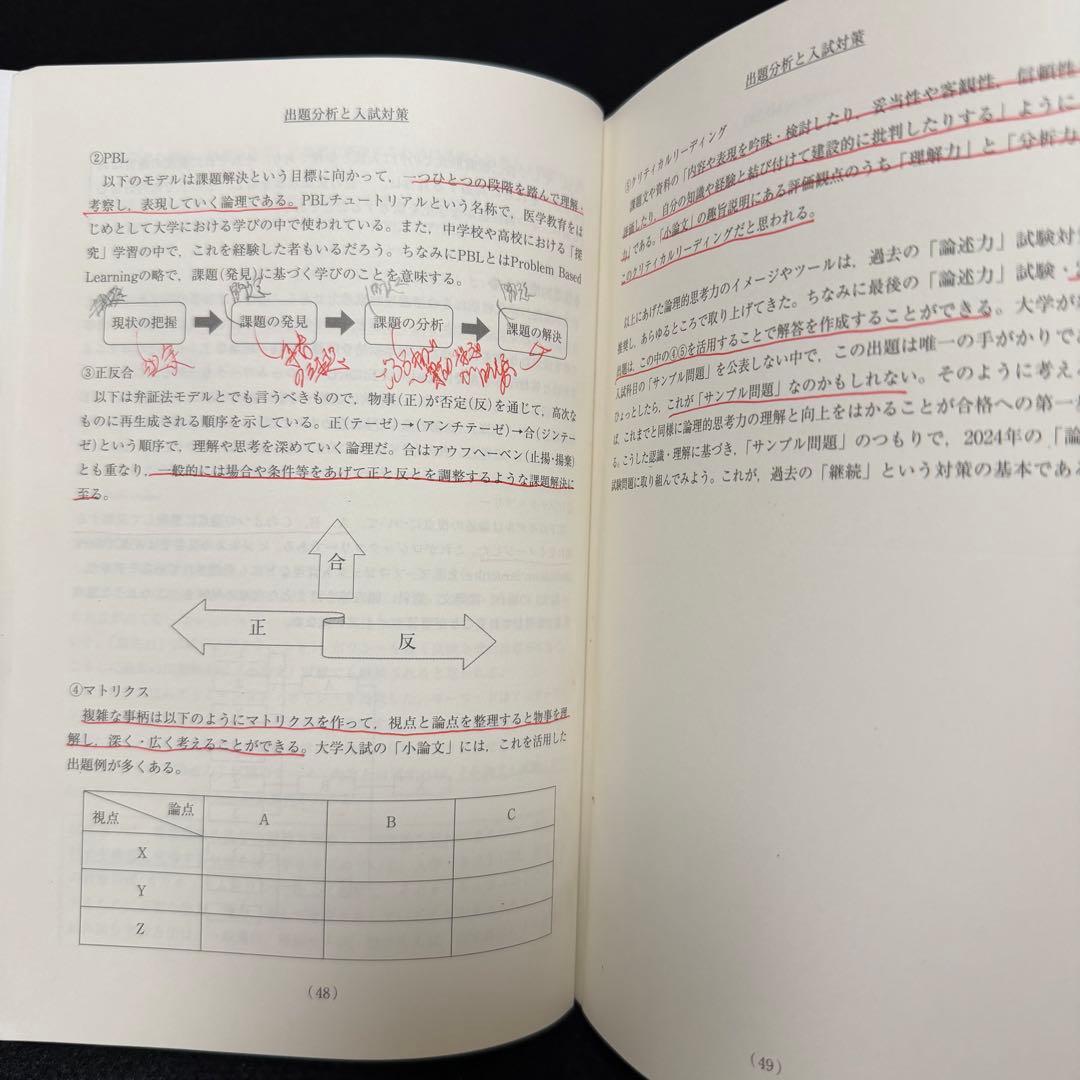 出題分析と入試対策
②PBL
以下のモデルは課題解決という目標に向かって，一つひとつの段階を踏んで理解・
考察し，表現していく論理である。PBLチュートリアルという名称で，医学教育をは
じめとして大学における学びの中で使われている。また，中学校や高校における「探
究」学習の中で，これを経験した者もいるだろう。ちなみにPBLとはProblem Based
Learningの略で，課題(発見)に基づく学びのことを意味する。
問題 問題 問題
現状の把握 課題の発見 課題の分析 課題の解決
③正反合
以下は弁証法モデルとでも言うべきもので，物事(正)が否定(反)を通じて，高次な
ものに再生成される順序を示している。正(テーゼ)→(アンチテーゼ)→合(ジンテー
ゼ)という順序で，理解や思考を深めていく論理だ。合はアウフヘーベン(止揚・揚棄)
とも重なり，一般的には場合や条件等をあげて正と反とを調整するような課題解決に
至る。
合
正 反
④マトリクス
複雑な事柄は以下のようにマトリクスを作って，視点と論点を整理すると物事を理
解し，深く・広く考えることができる。大学入試の「小論文」には，これを活用した
出題例が多くある。
論点
視点 A B C
X
Y
Z
(48)
出題分析と入試対策
⑤クリティカルリーディング
課題文や資料の「内容や表現を吟味・検討したり，妥当性や客観性，信頼性
評価したり，自分の知識や経験と結び付けて建設的に批判したりする」ように
む」である。「小論文」の趣旨説明にある評価観点のうち「理解力」と「分析力
このクリティカルリーディングだと思われる。
以上にあげた論理的思考力のイメージやツールは，過去の「論述力」試験対
推奨し，あらゆるところで取り上げてきた。ちなみに最後の「論述力」試験・
出題は，この中の④⑤を活用することで解答を作成することができる。大学が
入試科目の「サンプル問題」を公表しない中で，この出題は唯一の手がかりであ
ひょっとしたら，これが「サンプル問題」なのかもしれない。そのように考え
ば，これまでと同様に論理的思考力の理解と向上をはかることが合格への第一
る。こうした認識・理解に基づき，「サンプル問題」のつもりで，2024年の「論
試験問題に取り組んでみよう。これが，過去の「継続」という対策の基本であ
(49)